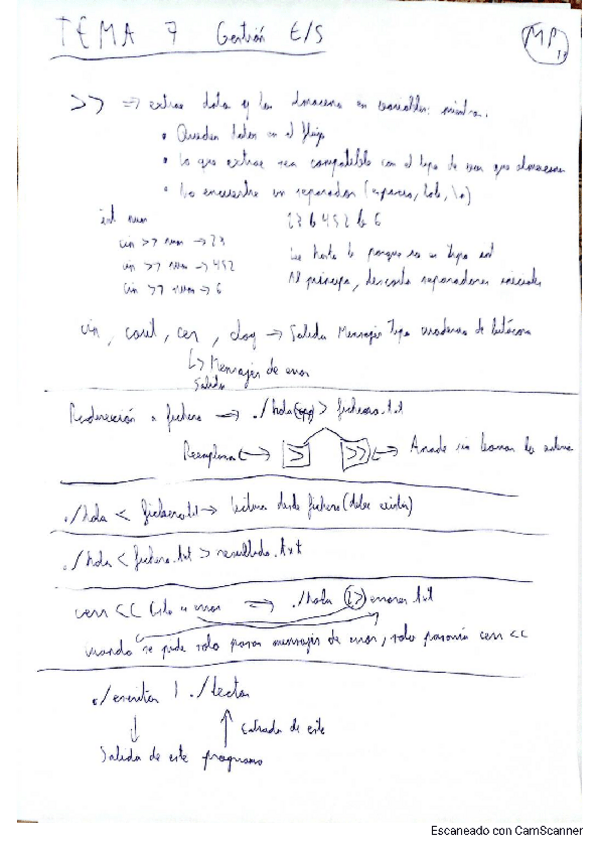 TEMA 7 Gestión E/S
MP
>> => extrae datos y los almacena en variables mientras:
• Queden datos en el flujo
• Lo que extrae sea compatible con el tipo de var que almacena
• No encuentre un separador (espacio, tab, \n)
int num
23 b 452 b 6
cin >> num -> 23
Lee hasta b porque no es tipo int
cin >> num -> 452
Al principio, descarta separadores iniciales
cin >> num -> 6
cin, cout, cerr, clog -> Salida Mensajes Tipo cuaderno de bitácora
↳ Mensajes de error
Salida
Redirección a fichero -> ./hola > fichero.txt
Reemplaza <- > >> -> Añade sin borrar lo
./hola < fichero.txt -> lectura desde fichero (debe existir)
./hola < fichero.txt > resultado.txt
cerr << Esto es error => ./hola 2> errores.txt
cuando se pide solo pasar mensajes de error, solo pasaría cerr <<
./escritor | ./lector
Entrada de este
Salida de este programa
Escaneado con CamScanner